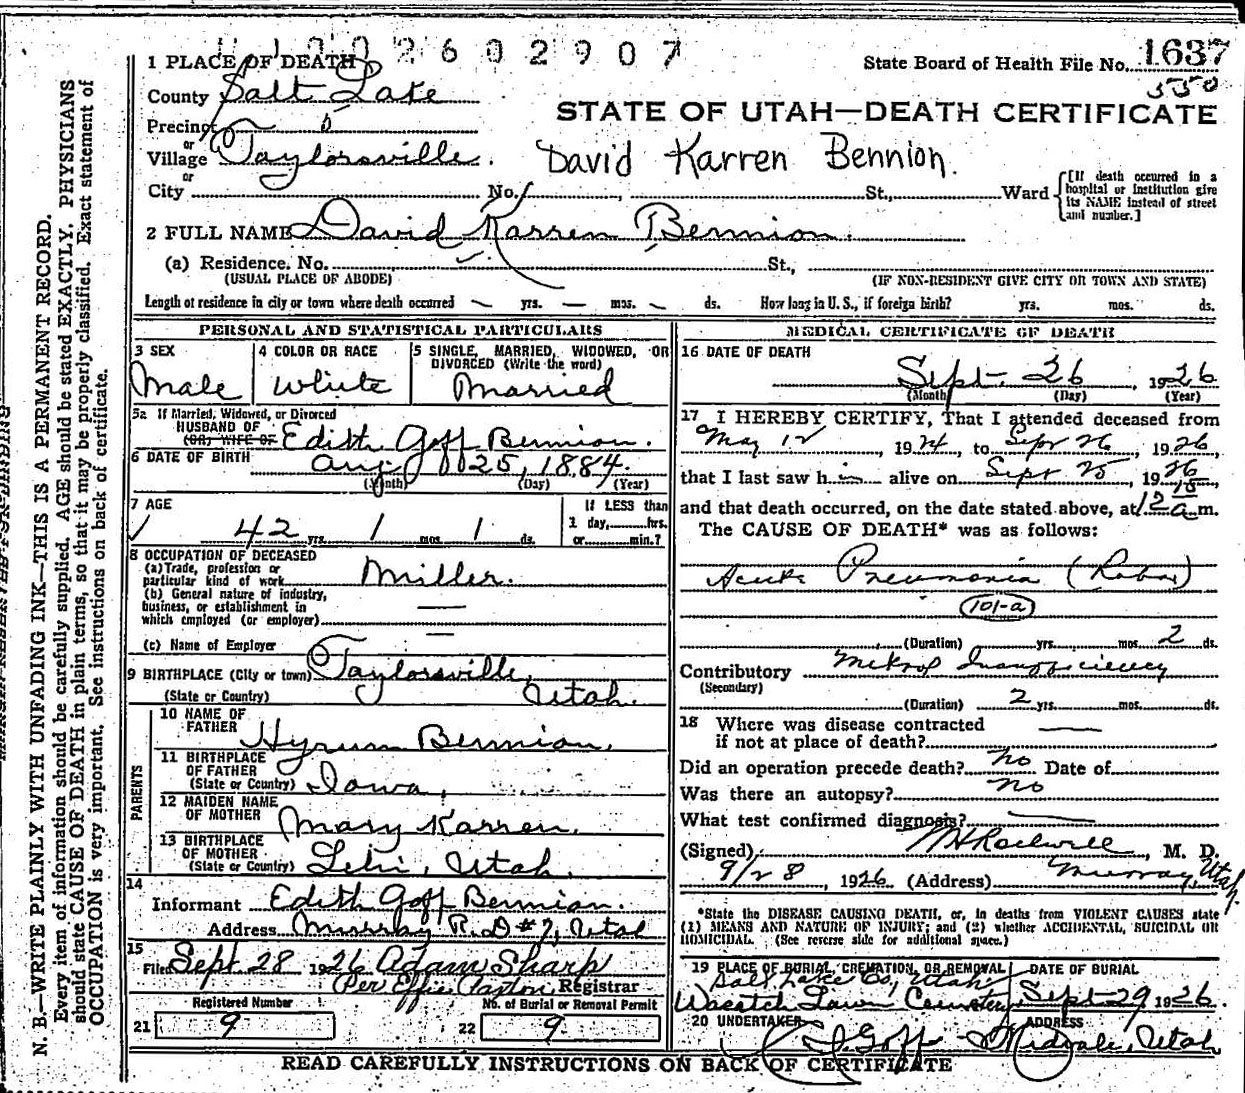 1002602907
1 PLACE OF DEATH
State Board of Health File No. 1637
350
County Salt Lake
STATE OF UTAH—DEATH CERTIFICATE
Precinct
or
Village Taylorsville.
David Karren Bennion.
or
City No. St., Ward
[If death occurred in a hospital or institution give its NAME instead of street and number.]
2 FULL NAME David Karren Bennion.
(a) Residence. No. St.,
(USUAL PLACE OF ABODE) (IF NON-RESIDENT GIVE CITY OR TOWN AND STATE)
Length of residence in city or town where death occurred — yrs. — mos. — ds. How long in U. S., if foreign birth? yrs. mos. ds.
PERSONAL AND STATISTICAL PARTICULARS
3 SEX
Male
4 COLOR OR RACE
White
5 SINGLE, MARRIED, WIDOWED, OR DIVORCED (Write the word)
Married
5a If Married, Widowed, or Divorced
HUSBAND OF
(OR) WIFE OF Edith Goff Bennion.
6 DATE OF BIRTH Aug. 25, 1884.
(Month) (Day) (Year)
7 AGE
42 yrs. 1 mos. 1 ds.
If LESS than
1 day, hrs.
or min.?
8 OCCUPATION OF DECEASED
(a) Trade, profession or
particular kind of work Miller.
(b) General nature of industry,
business, or establishment in
which employed (or employer) —
(c) Name of Employer —
9 BIRTHPLACE (City or town) Taylorsville,
(State or Country) Utah.
PARENTS
10 NAME OF
FATHER Hyrum Bennion.
11 BIRTHPLACE
OF FATHER
(State or Country) Iowa,
12 MAIDEN NAME
OF MOTHER Mary Karren.
13 BIRTHPLACE
OF MOTHER
(State or Country) Lehi, Utah.
14
Informant Edith Goff Bennion.
Address Murray R.D #7, Utah
15
Filed Sept 28 1926 Adam Sharp
Registrar
Registered Number
21 9
No. of Burial or Removal Permit
22 9
MEDICAL CERTIFICATE OF DEATH
16 DATE OF DEATH
Sept. 26, 1926
(Month) (Day) (Year)
17 I HEREBY CERTIFY, That I attended deceased from
May 12 1924, to Sept 26, 1926,
that I last saw him alive on Sept 25, 1926,
and that death occurred, on the date stated above, at 12 15 a.m.
The CAUSE OF DEATH* was as follows:
Acute Pneumonia (Lobar)
101-a
(Duration) yrs. mos. 2 ds.
Contributory Mitral Insufficiency
(Secondary)
(Duration) 2 yrs. mos. ds.
18 Where was disease contracted
if not at place of death? —
Did an operation precede death? no Date of
Was there an autopsy? no
What test confirmed diagnosis? —
(Signed) Rockwell, M. D.
9/28, 1926 (Address) Murray, Utah.
*State the DISEASE CAUSING DEATH, or, in deaths from VIOLENT CAUSES state
(1) MEANS AND NATURE OF INJURY; and (2) whether ACCIDENTAL, SUICIDAL OR
HOMICIDAL. (See reverse side for additional space.)
19 PLACE OF BURIAL, CREMATION, OR REMOVAL
Salt Lake Co, Utah
Wasatch Lawn Cemetery
DATE OF BURIAL
Sept 29 1926.
20 UNDERTAKER
Goff
ADDRESS
Midvale, Utah
READ CAREFULLY INSTRUCTIONS ON BACK OF CERTIFICATE
N. B.—WRITE PLAINLY WITH UNFADING INK—THIS IS A PERMANENT RECORD.
Every item of information should be carefully supplied. AGE should be stated EXACTLY. PHYSICIANS
should state CAUSE OF DEATH in plain terms, so that it may be properly classified. Exact statement of
OCCUPATION is very important. See instructions on back of certificate.